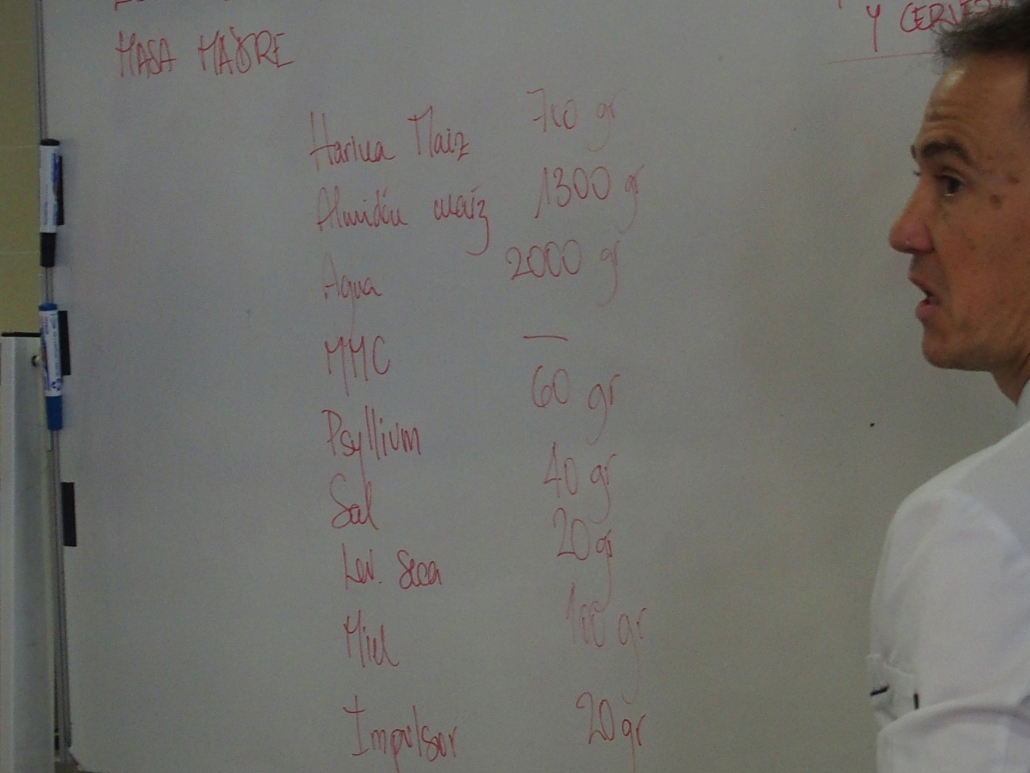 Y CERVEZA
MASA MADRE
Harina Maiz 700 gr
Almidón maíz 1300 gr
Agua 2000 gr
MMC —
Psyllium 60 gr
Sal 40 gr
Lev. Seca 20 gr
Miel 100 gr
Impulsor 20 gr